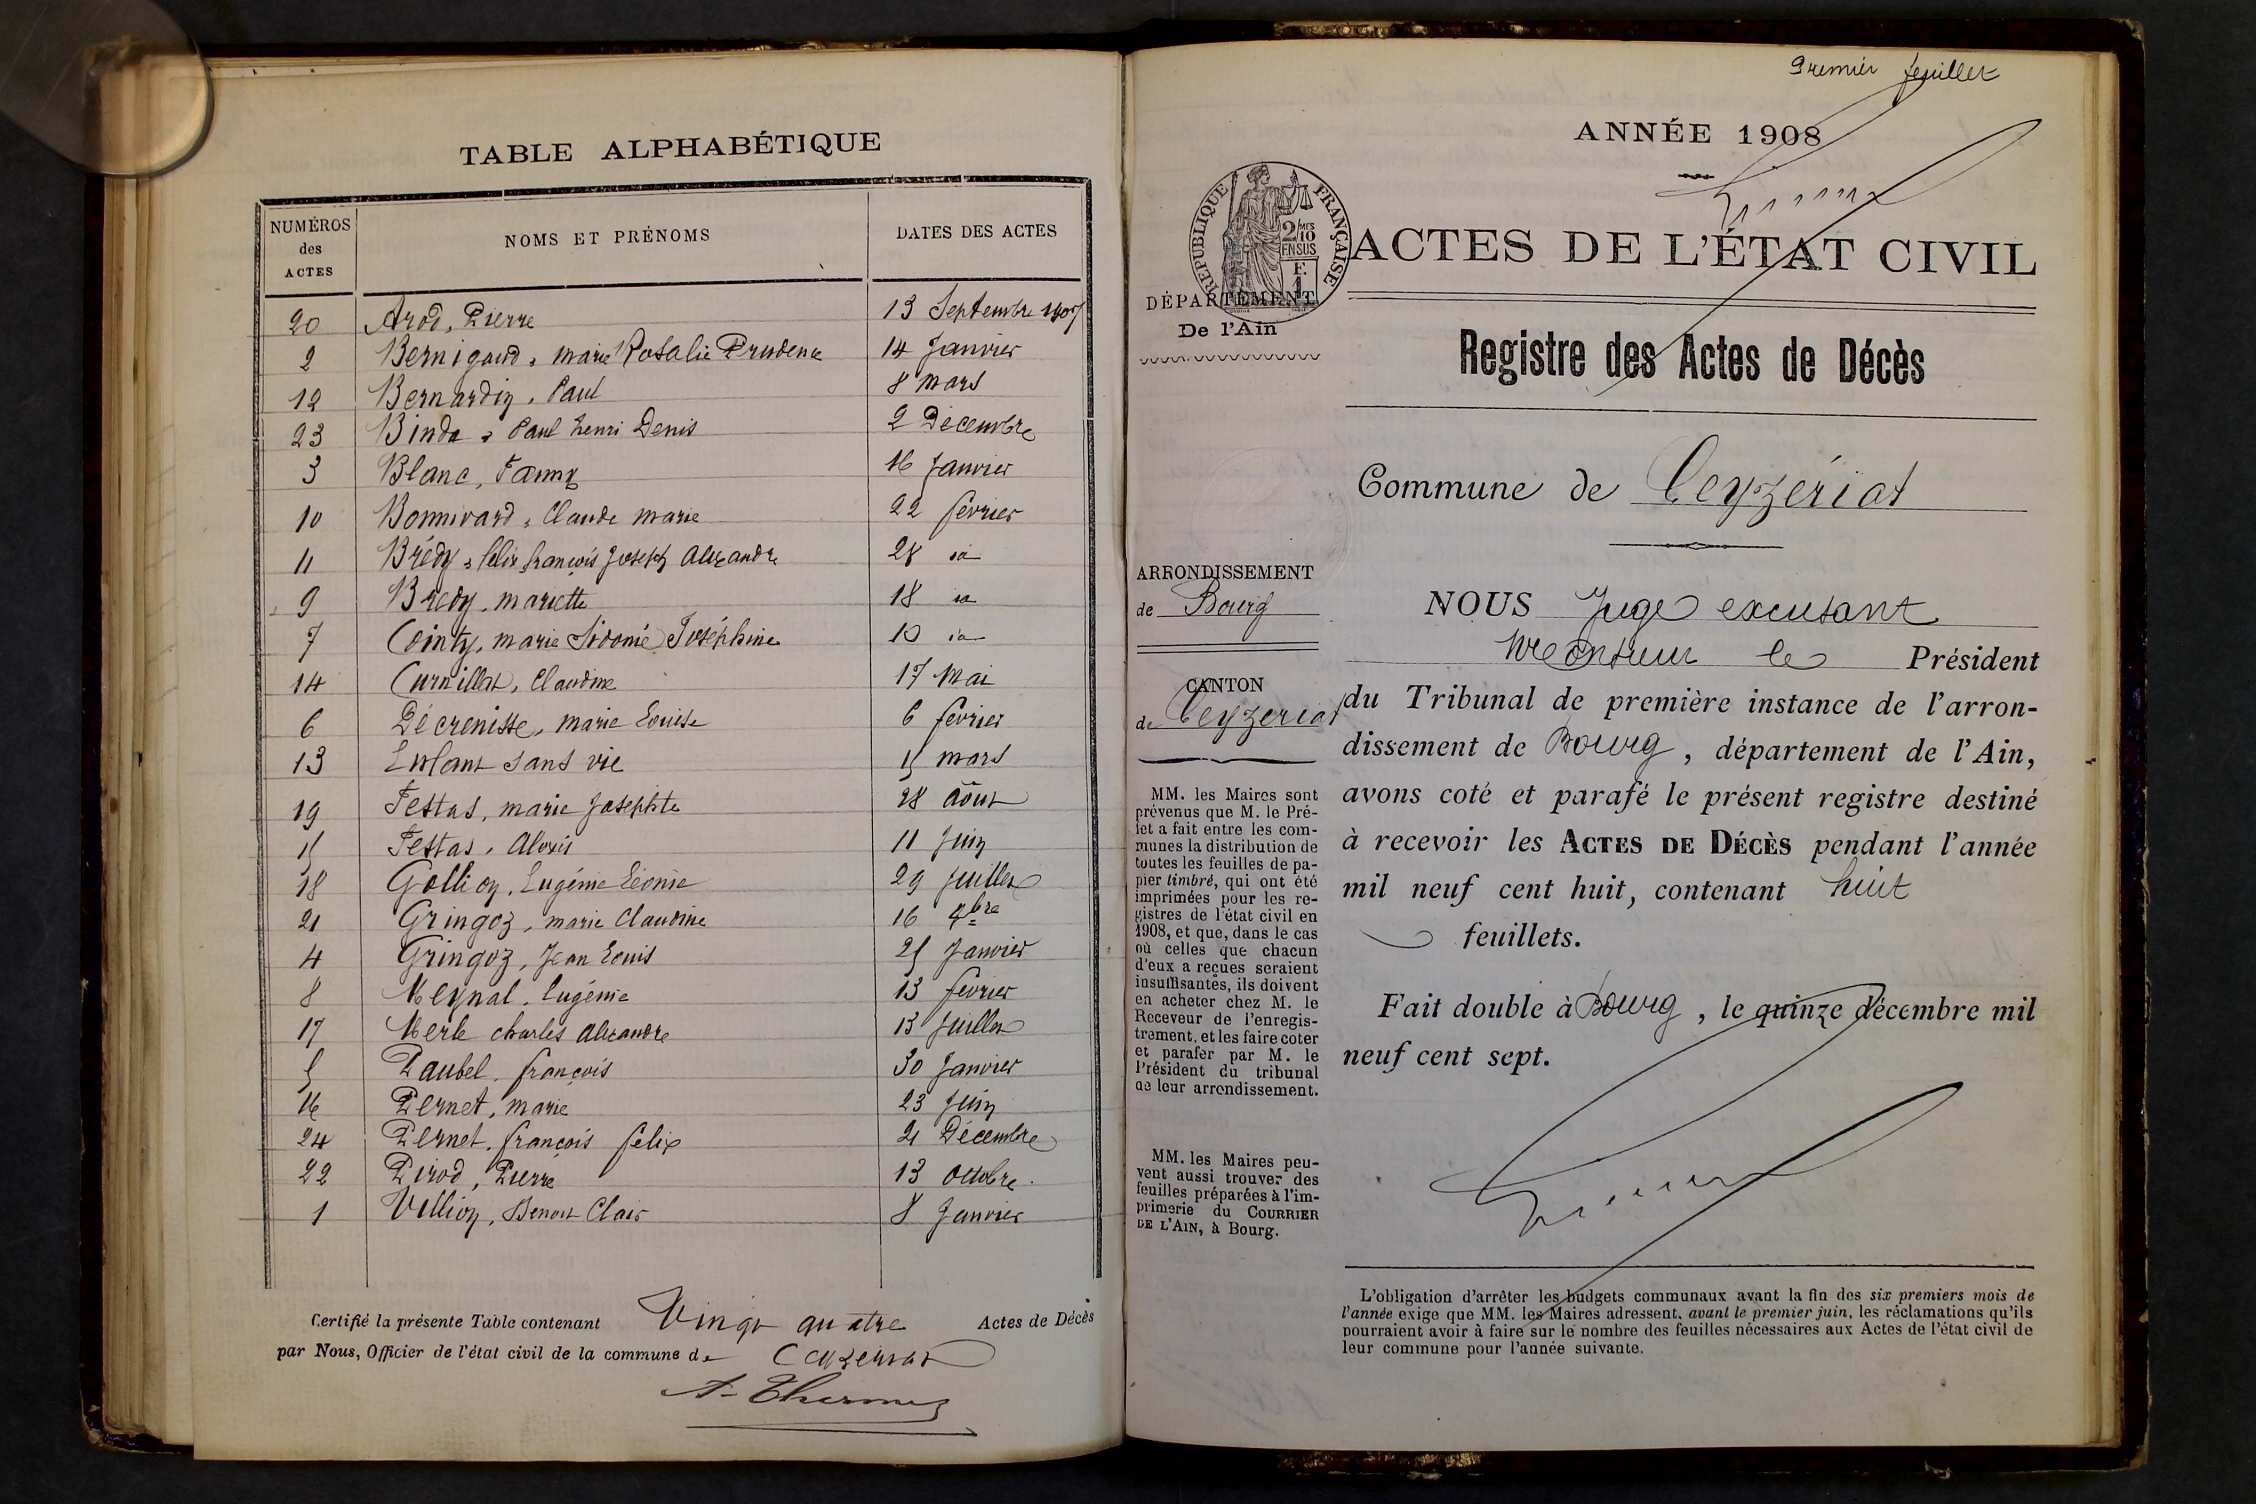 TABLE ALPHABÉTIQUE
NUMÉROS des ACTES
NOMS ET PRÉNOMS
DATES DES ACTES
20 Arod, Pierre 13 Septembre 1907
2 Bernigaud, marie Rosalie Prudence 14 Janvier
12 Bernardin, Paul 8 mars
23 Binda, Paul henri Denis 2 Décembre
3 Blanc, Fanny 16 Janvier
10 Bonnivard, Claude marie 22 février
11 Brédy, félix françois Joseph Alexandre 28 id
9 Brédy, mariette 18 id
7 Cointy, marie Sidonie Joséphine 10 id
14 Curnillon, Claudine 17 Mai
6 Décrenisse, marie Louise 6 février
13 Enfant sans vie 15 mars
19 Festas, marie Josephte 28 Août
15 Festas, Alexis 11 Juin
18 Gollion, Eugénie Léonie 29 Juillet
21 Gringoz, marie Claudine 16 7bre
4 Gringoz, Jean Louis 25 Janvier
8 Meynal, Eugénie 13 février
17 Merle charles alexandre 13 Juillet
5 Paubel, françois 30 Janvier
16 Pernet, marie 23 Juin
24 Pernet, françois félix 21 Décembre
22 Pirod, Pierre 13 Octobre
1 Vellion, Benoit Clair 8 Janvier
Certifié la présente Table contenant Vingt quatre Actes de Décès
par Nous, Officier de l'état civil de la commune de Ceyzériat
A. Thermoz
Premier feuillet
ANNÉE 1908
RÉPUBLIQUE FRANÇAISE
2/10 MES
EN SUS
F. 1
ACTES DE L'ÉTAT CIVIL
DÉPARTEMENT
De l'Ain
Registre des Actes de Décès
Commune de Ceyzériat
ARRONDISSEMENT
de Bourg
CANTON
de Ceyzeriat
MM. les Maires sont
prévenus que M. le Pré-
fet a fait entre les com-
munes la distribution de
toutes les feuilles de pa-
pier timbré, qui ont été
imprimées pour les re-
gistres de l'état civil en
1908, et que, dans le cas
où celles que chacun
d'eux a reçues seraient
insuffisantes, ils doivent
en acheter chez M. le
Receveur de l'enregis-
trement, et les faire coter
et parafer par M. le
Président du tribunal
de leur arrondissement.
MM. les Maires peu-
vent aussi trouver des
feuilles préparées à l'im-
primerie du COURRIER
DE L'AIN, à Bourg.
NOUS Juge excusant
Monsieur le Président
du Tribunal de première instance de l'arron-
dissement de Bourg, département de l'Ain,
avons coté et parafé le présent registre destiné
à recevoir les ACTES DE DÉCÈS pendant l'année
mil neuf cent huit, contenant huit
feuillets.
Fait double à Bourg, le quinze décembre mil
neuf cent sept.
L'obligation d'arrêter les budgets communaux avant la fin des six premiers mois de
l'année exige que MM. les Maires adressent, avant le premier juin, les réclamations qu'ils
pourraient avoir à faire sur le nombre des feuilles nécessaires aux Actes de l'état civil de
leur commune pour l'année suivante.